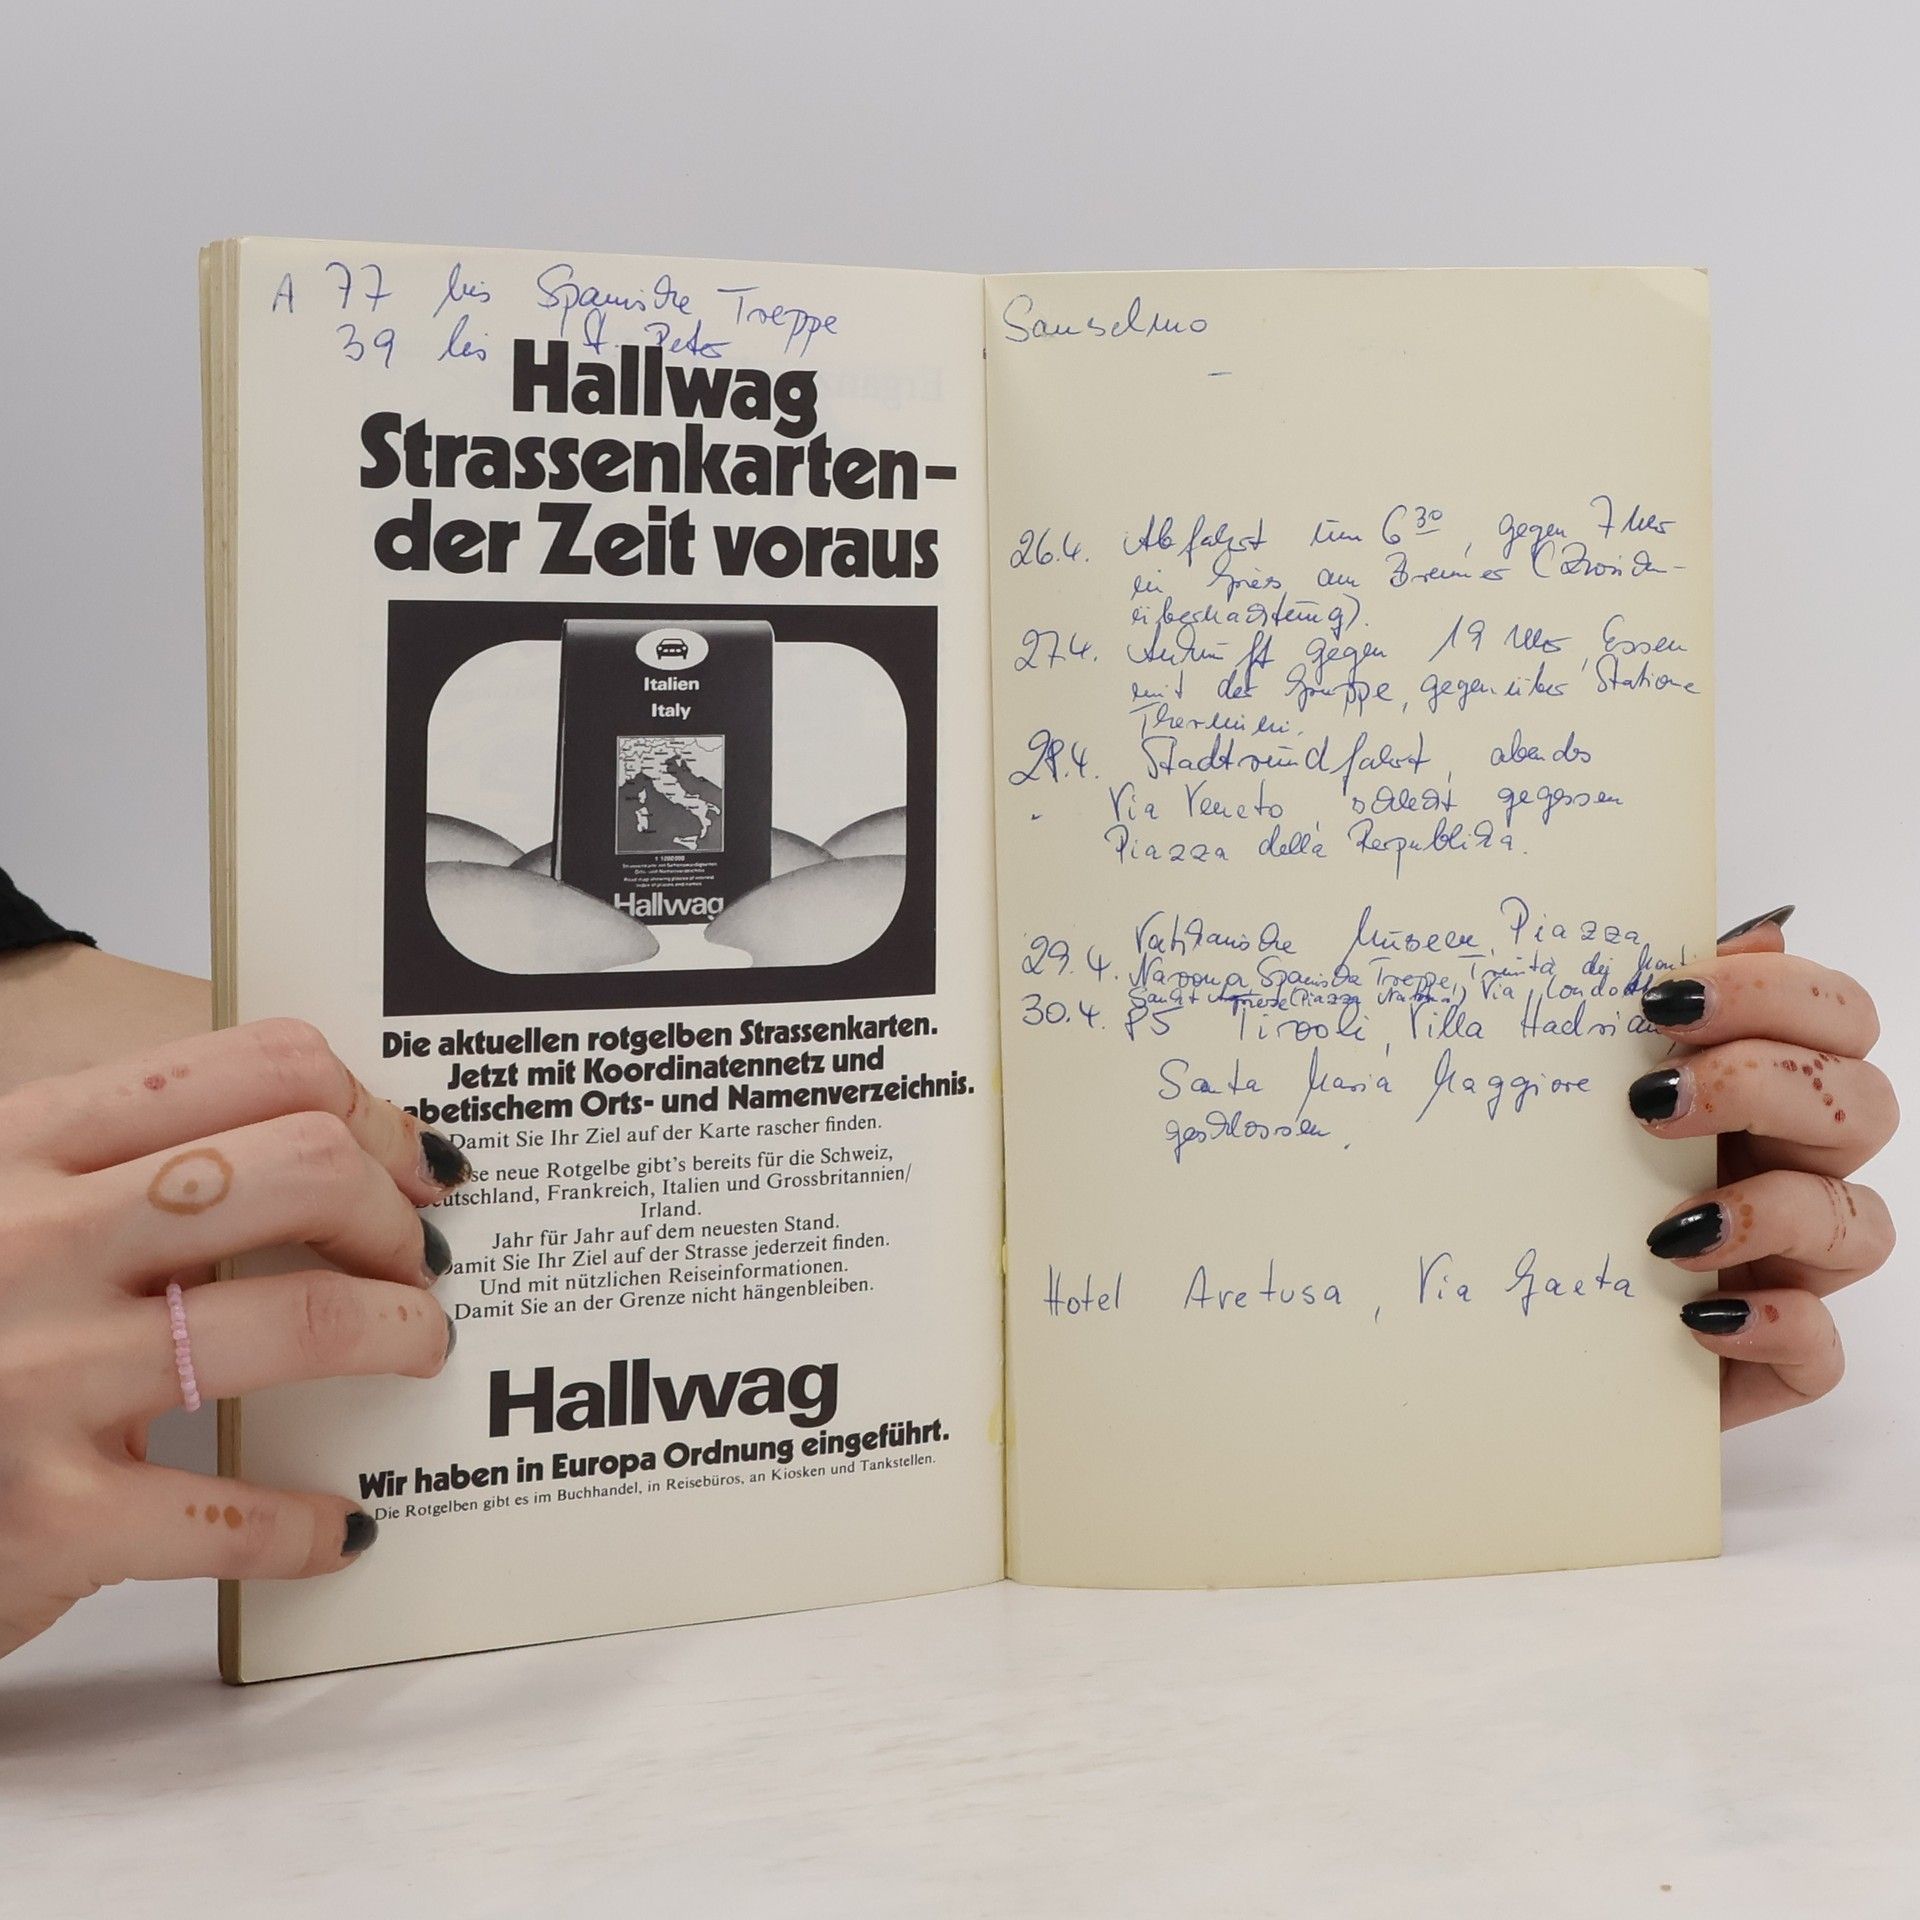 A 77 bis Spanische Treppe
39 bis St. Peter
Hallwag
Strassenkarten-
der Zeit voraus
Italien
Italy
Hallwag
Die aktuellen rotgelben Strassenkarten.
Jetzt mit Koordinatennetz und
abetischem Orts- und Namenverzeichnis.
Damit Sie Ihr Ziel auf der Karte rascher finden.
se neue Rotgelbe gibt's bereits für die Schweiz,
eutschland, Frankreich, Italien und Grossbritannien/
Irland.
Jahr für Jahr auf dem neuesten Stand.
amit Sie Ihr Ziel auf der Strasse jederzeit finden.
Und mit nützlichen Reiseinformationen.
Damit Sie an der Grenze nicht hängenbleiben.
Hallwag
Wir haben in Europa Ordnung eingeführt.
Die Rotgelben gibt es im Buchhandel, in Reisebüros, an Kiosken und Tankstellen.
Sanselmo
26.4. Abfahrt um 6 30, gegen 7 Uhr
in Gries am Brenner (Zwischen-
übernachtung).
27.4. Ankunft gegen 19 Uhr, Essen
mit der Gruppe, gegenüber Statione
Thermini.
28.4. Stadtrundfahrt, abends
Via Veneto, schlecht gegessen
Piazza della Republika.
29.4. Vatikanische Museen, Piazza
Navona, Spanische Treppe, Trinità dei Monti
Via
30.4. Tivoli, Villa Hadrian
Santa Maria Maggiore
geschlossen.
Hotel Aretusa, Via Gaeta